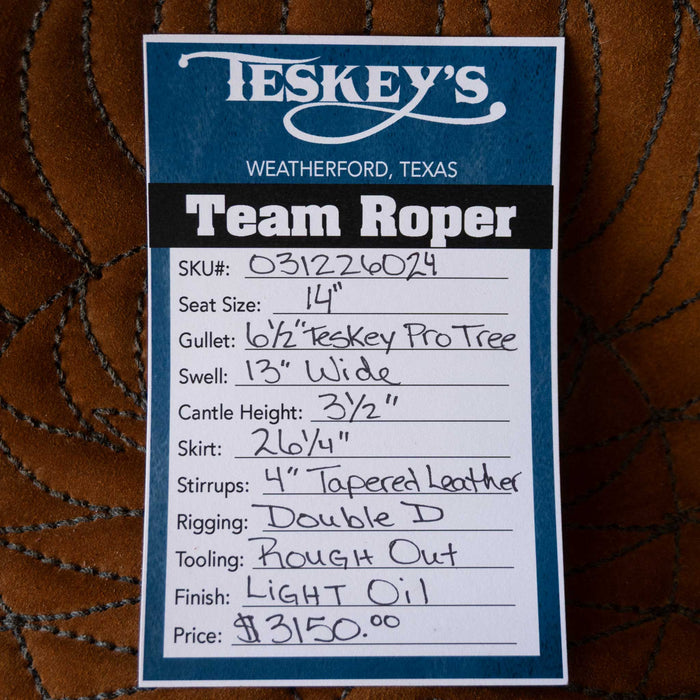 TESKEY'S
WEATHERFORD, TEXAS
Team Roper
SKU#: 031226024
Seat Size: 14"
Gullet: 6½" Teskey Pro Tree
Swell: 13" Wide
Cantle Height: 3½"
Skirt: 26¼"
Stirrups: 4" Tapered Leather
Rigging: Double D
Tooling: ROUGH Out
Finish: LIGHT Oil
Price: $3150.00